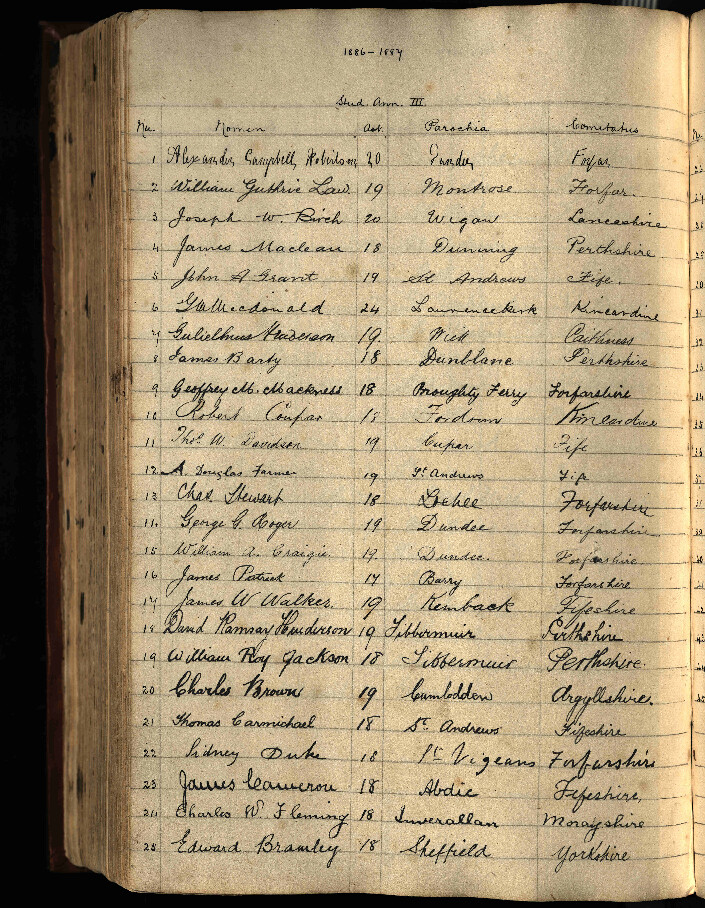 1886-1887
Stud. Ann. III.
No. Nomen Aet. Parochia Comitatus
1 Alexander Campbell Robertson 20 Forfar
2 William Guthrie Law 19 Montrose Forfar.
3 Joseph W. Birch 20 Wigan Lancashire
4 James Maclean 18 Dunning Perthshire
5 John A Grant 19 St Andrews Fife.
6 Macdonald 24 Laurencekirk Kincardine
7 Gulielmus Henderson 19. Wick Caithness
8 James Barty 18 Dunblane Perthshire
9 Geoffrey M. Mackness 18 Broughty Ferry Forfarshire
10 Robert Coupar 18 Fordoun Kincardine
11 Thos. W. Davidson 19 Cupar Fife
12 A. Douglas Farmer 19 St Andrews Fife
13 Chas. Stewart 18 Lochee Forfarshire
14. George G. Roger 19 Dundee Forfarshire
15 William A. Craigie 19. Dundee. Forfarshire.
16 James Patrick 17 Barry Forfarshire
17 James W Walker. 19 Kemback Fifeshire
18 David Ramsay Henderson 19 Tibbermuir Perthshire
19 William Roy Jackson 18 Tibbermuir Perthshire.
20 Charles Brown 19 Cumlodden Argyllshire.
21 Thomas Carmichael 18 St. Andrews Fifeshire
22 Sidney Duke 18 St Vigeans Forfarshire
23 James Cameron 18 Abdie Fifeshire,
24 Charles W. Fleming 18 Inverallan Morayshire
25 Edward Bramley 18 Sheffield Yorkshire